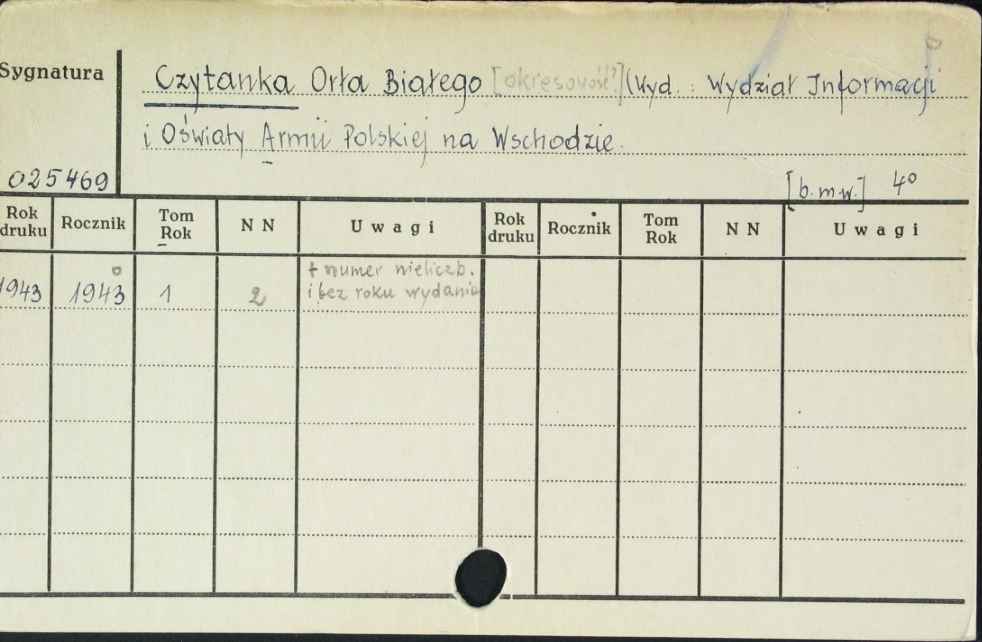 Sygnatura
Czytanka Orła Białego [okresowość?] (Wyd. : Wydział Informacji
i Oświaty Armii Polskiej na Wschodzie.
025469
[b.m.w.] 4°
Rok druku Rocznik Tom Rok NN Uwagi Rok druku Rocznik Tom Rok NN Uwagi
+ numer nieliczb.
1943 1943 1 2 i bez roku wydania